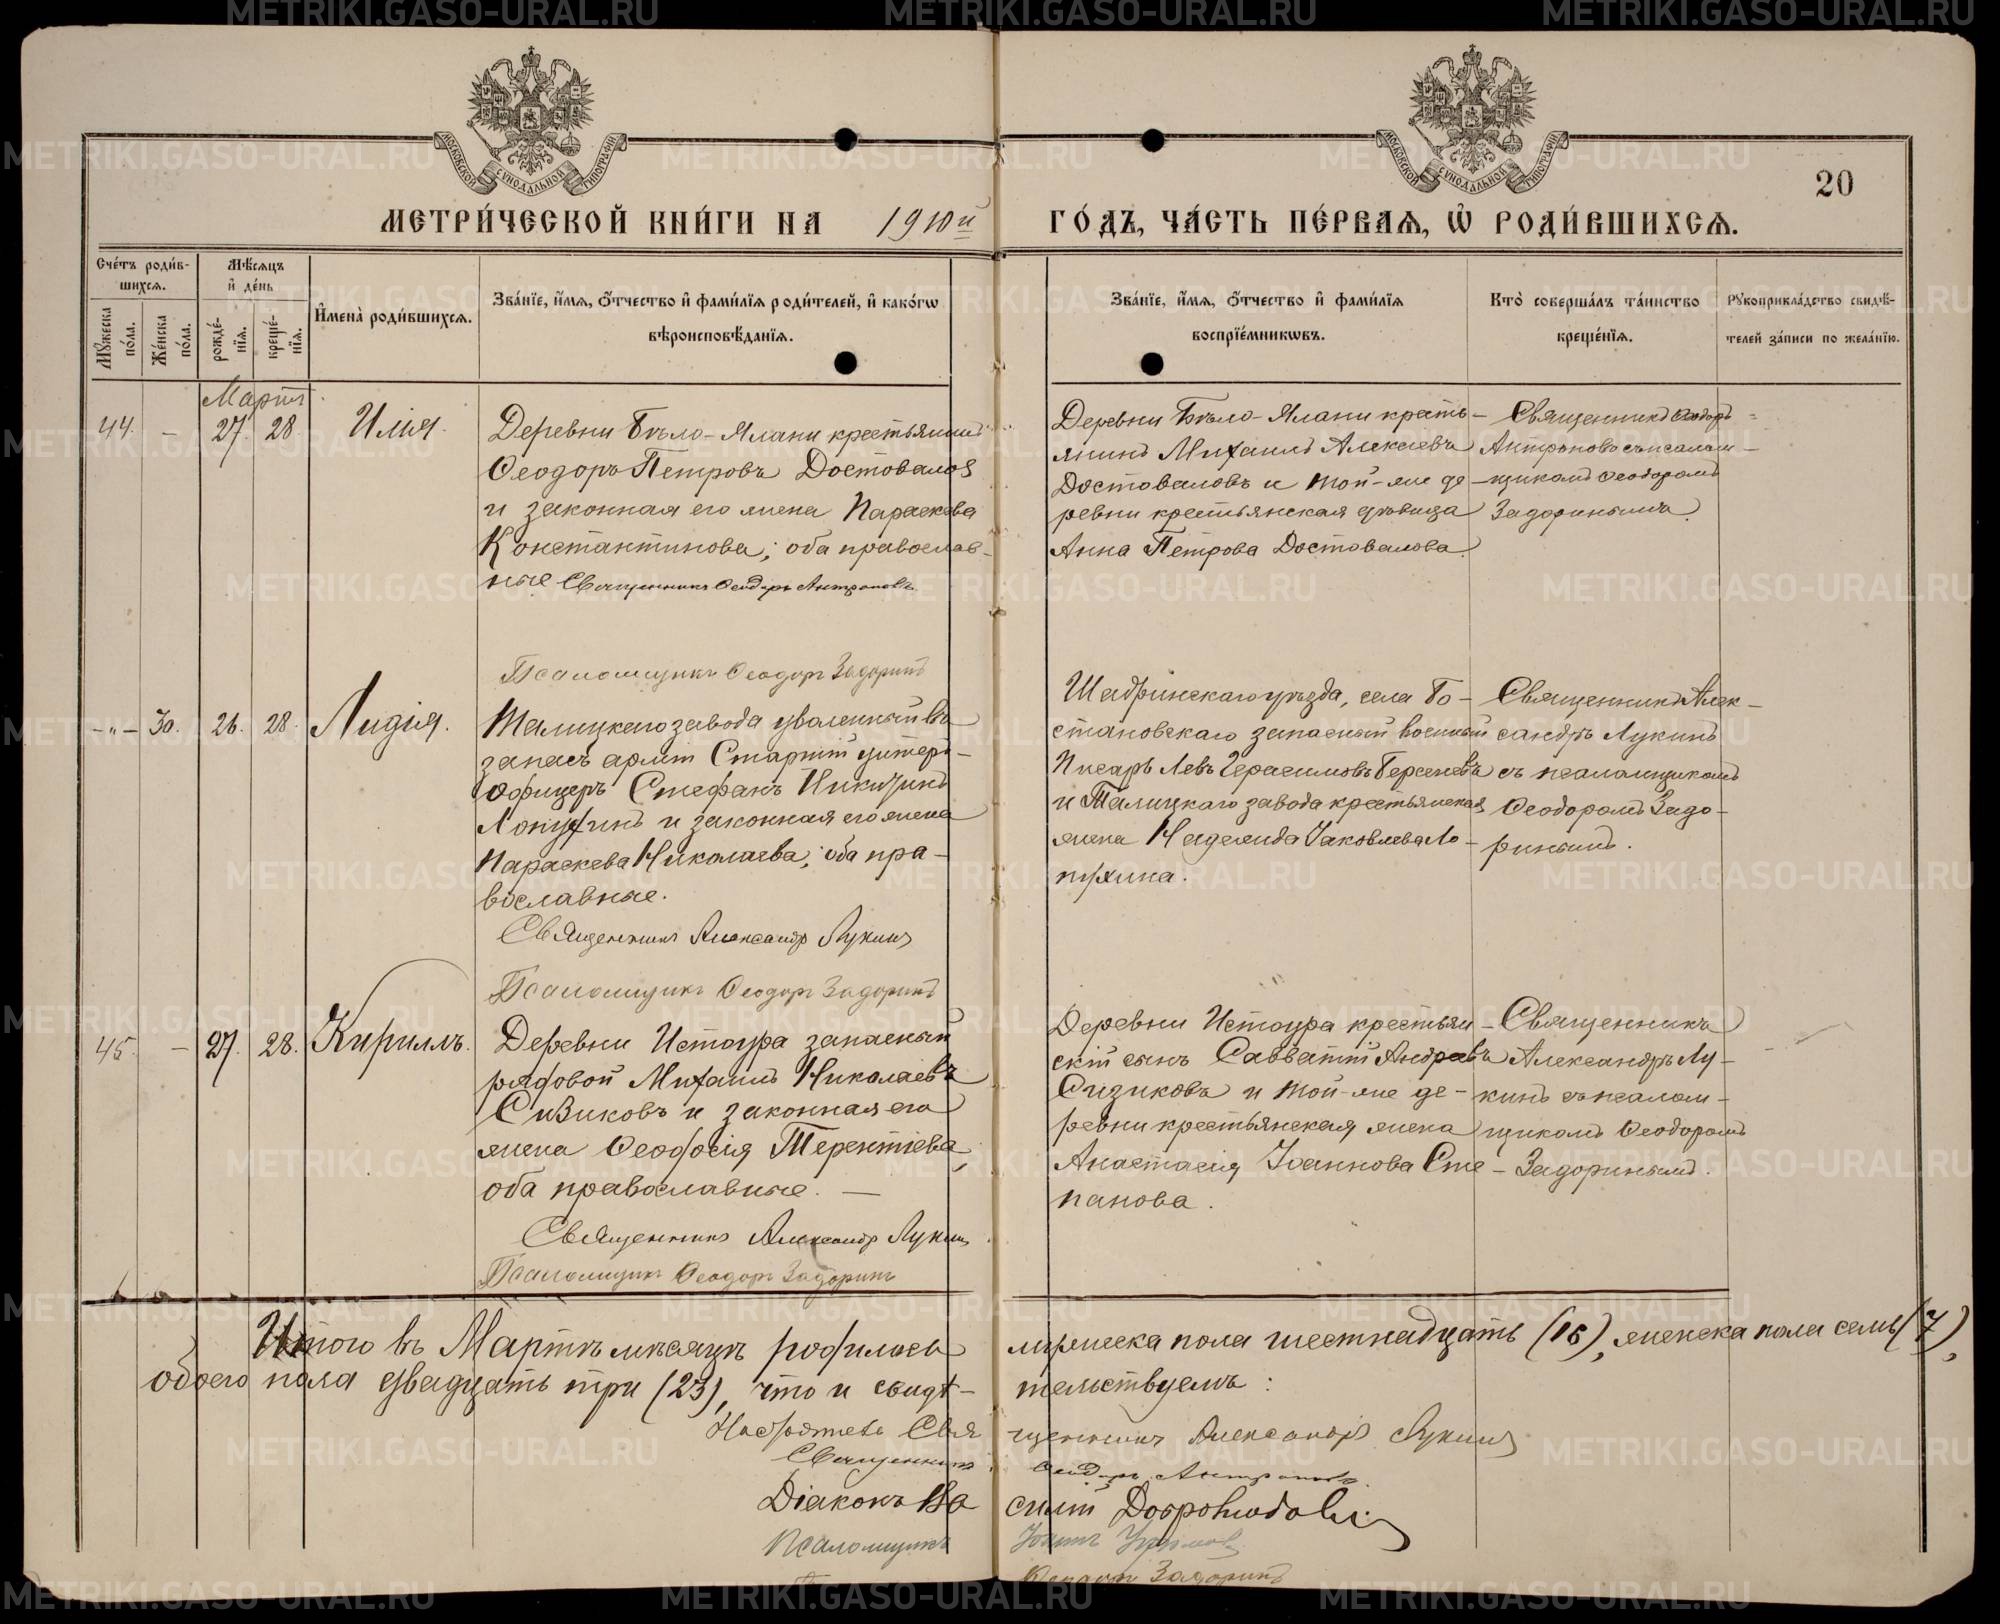 МОСКОВСКОЙ СѴНОДАЛЬНОЙ ТИПОГРАФІИ
МОСКОВСКОЙ СѴНОДАЛЬНОЙ ТИПОГРАФІИ
20
МЕТРИ́ЧЕСКОЙ КНИ́ГИ НА 1910й ГО́ДЪ, ЧА́СТЬ ПЕ́РВАѦ, Ѡ҆ РОДИ́ВШИХСѦ.
Сче́тъ роди́в-
шихсѧ.
Мꙋ́жеска по́ла.
Же́нска по́ла.
Мѣ́сѧцъ
и҆ де́нь
рожде́-
нїѧ.
креще́-
нїѧ.
И҆мена̀ роди́вшихсѧ.
Зва́нїе, и҆́мѧ, ѻ҆́тчество и҆ фами́лїѧ роди́телей, и҆ како́гѡ
вѣроисповѣ́данїѧ.
Зва́нїе, и҆́мѧ, ѻ҆́тчество и҆ фами́лїѧ
воспрїе́мникѡвъ.
Кто̀ соверша́лъ та́инство
креще́нїѧ.
Рꙋкоприкла́дство свидѣ́-
телей за́писи по жела́нїю.
Мартъ
44. — 27. 28. Илія.
Деревни Бѣло-Ялани крестьянинъ
Ѳеодоръ Петровъ Достоваловъ
и законная его жена Параскева
Константинова; оба православ-
ные Священникъ Ѳеодоръ Антроповъ
Псаломщикъ Ѳеодоръ Задоринъ
Деревни Бѣло-Ялани кресть-
янинъ Михаилъ Алексѣевъ
Достоваловъ и той-же де-
ревни крестьянская дѣвица
Анна Петрова Достовалова
Священникъ Ѳеодоръ
Антроповъ съ псалом-
щикомъ Ѳеодоромъ
Задоринымъ.
-"- 30. 26. 28. Лидія.
Талицкаго завода уволенный въ
запасъ арміи Старшій унтеръ-
Офицеръ Стефанъ Никитинъ
Лопухинъ и законная его жена
Параскева Николаева; оба пра-
вославные.
Священникъ Александръ Лукинъ
Псаломщикъ Ѳеодоръ Задоринъ
Шадринскаго уѣзда, села
становскаго запасный военный
писарь Левъ Герасимовъ
и Талицкаго завода крестьянская
жена Надежда Іаковлева Ло-
пухина.
Священникъ Алек-
сандръ Лукинъ
съ псаломщикомъ
Ѳеодоромъ Задо-
ринымъ.
45. — 27. 28. Кириллъ.
Деревни Истоура запасный
рядовой Михаилъ Николаевъ
Сизиковъ и законная его
жена Ѳеодосія Терентіева;
оба православные. —
Священникъ Александръ Лукинъ
Псаломщикъ Ѳеодоръ Задоринъ
Деревни Истоура крестьян-
скій сынъ Савватій Андреевъ
Сизиковъ и той-же де-
ревни крестьянская жена
Анастасія Іоаннова Сте-
панова.
Священникъ
Александръ Лу-
кинъ съ псалом-
щикомъ Ѳеодоромъ
Задоринымъ.
Итого въ Мартѣ мѣсяцѣ родилось мужеска пола шестнадцать (16), женска пола семь (7),
обоего пола двадцать три (23), что и свидѣтельствуемъ:
Настоятель Священникъ Александръ Лукинъ
Священникъ Ѳеодоръ Антроповъ
Діаконъ Василій Добролюбовъ
Псаломщикъ Іоаннъ
Ѳеодоръ Задоринъ
METRIKI.GASO-URAL.RU